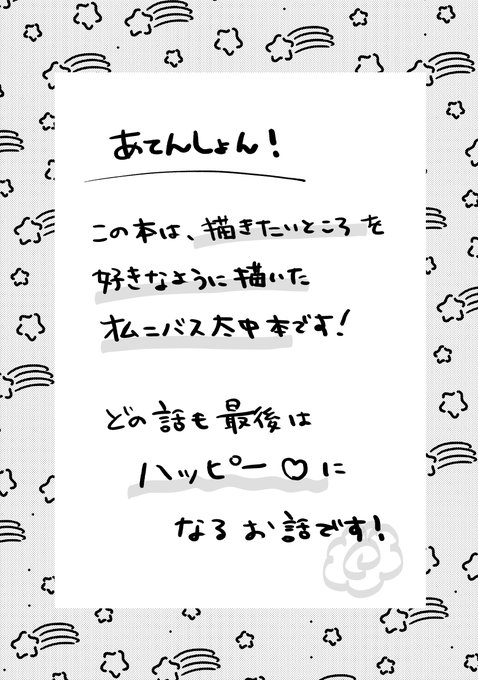 あてんしょん！
この本は、描きたいところを
好きなように描いた
オムニバス太中本です！
どの話も最後は
ハッピー♡に
なるお話です！